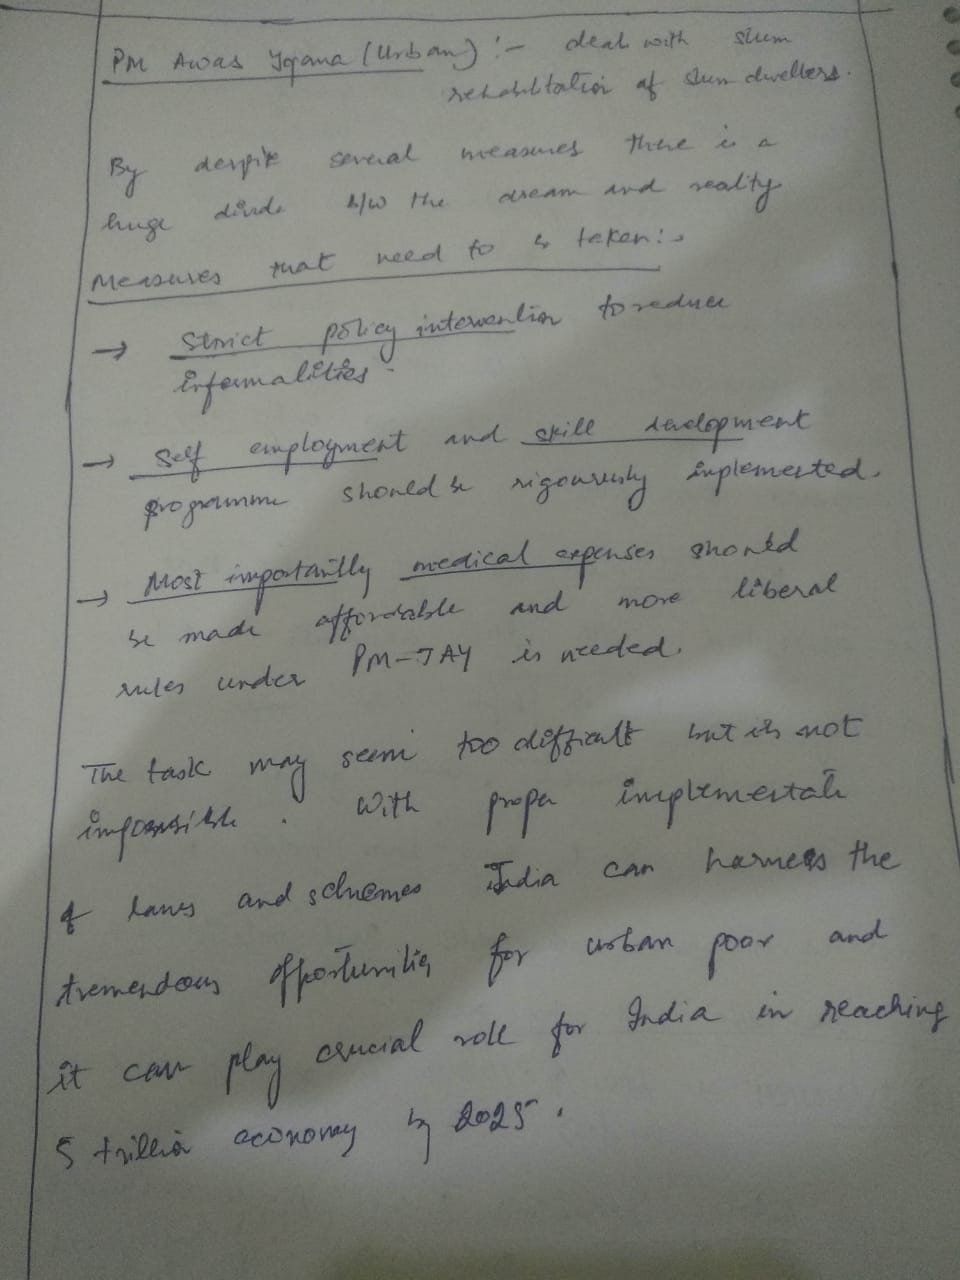 PM Awas Yojana (Urban) :- deal with slum
rehabilitation of slum dwellers.
By despite several measures there is a
huge divide b/w the dream and reality
Measures that need to be taken:-
→ Strict policy intervention to reduce
informalities.
→ Self employment and skill development
programme should be rigourously implemented.
→ Most importantly medical expenses should
be made affordable and more liberal
rules under PM-JAY is needed.
The task may seem too difficult but its not
impossible. With proper implementatn
of laws and schemes India can harness the
tremendous opportunities for urban poor and
it can play crucial role for India in reaching
5 trillion economy by 2025.